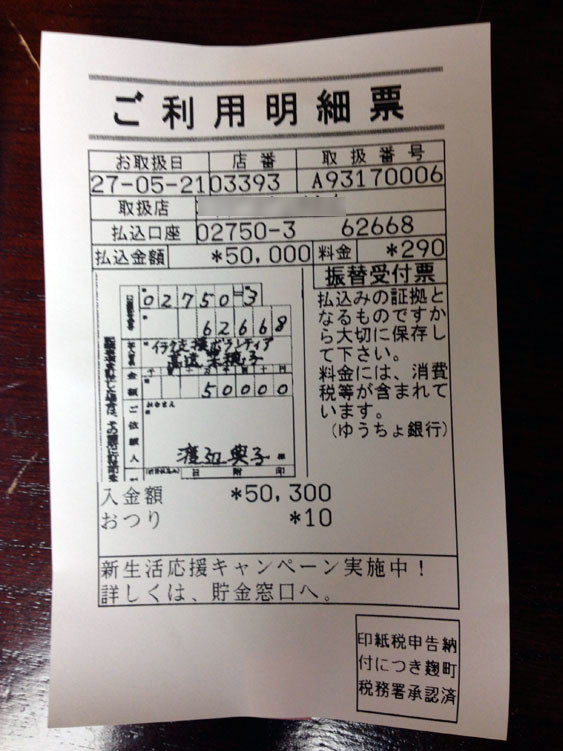 ご利用明細票
お取扱日 店番 取扱番号
27-05-21 03393 A93170006
取扱店
払込口座 02750-3 62668
払込金額 *50,000 料金 *290
振替受付票
払込みの証拠と
なるものですか
ら大切に保存し
て下さい。
料金には、消費
税等が含まれて
います。
(ゆうちょ銀行)
02750-3
62668
イラク支援ボランティア
高遠菜穂子
金額 50000
ご依頼人
渡辺 様
日附印
入金額 *50,300
おつり *10
新生活応援キャンペーン実施中!
詳しくは、貯金窓口へ。
印紙税申告納
付につき麹町
税務署承認済